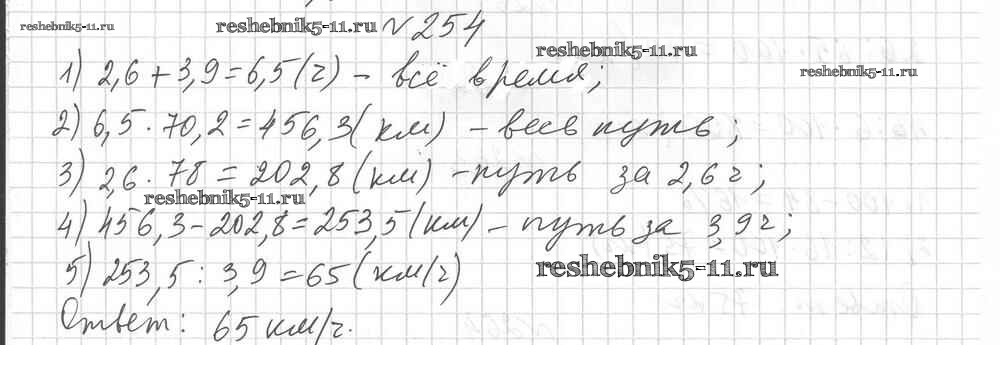 reshebnik5-11.ru
reshebnik5-11.ru
№ 254
reshebnik5-11.ru
reshebnik5-11.ru
1) 2,6 + 3,9 = 6,5 (ч) - всё время;
2) 6,5 · 70,2 = 456,3 (км) - весь путь;
3) 2,6 · 78 = 202,8 (км) - путь за 2,6 ч;
reshebnik5-11.ru
4) 456,3 - 202,8 = 253,5 (км) - путь за 3,9 ч;
5) 253,5 : 3,9 = 65 (км/ч)
reshebnik5-11.ru
Ответ: 65 км/ч.